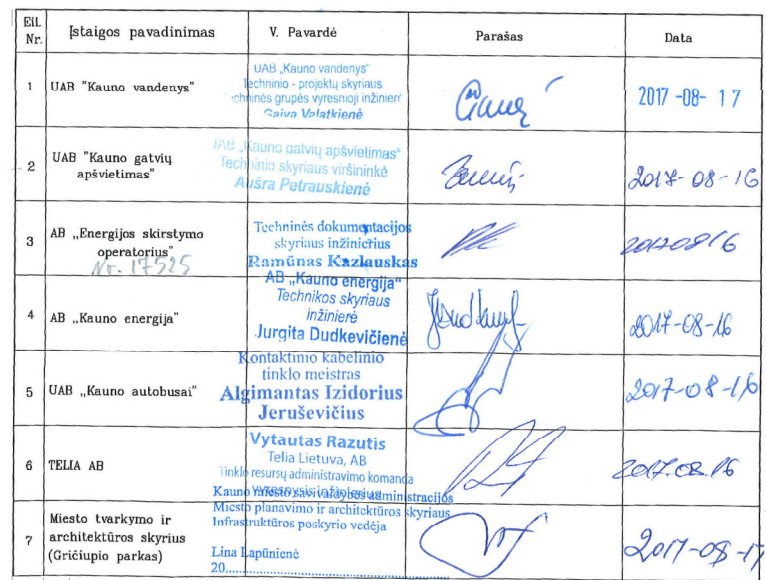 Eil. Nr.
Įstaigos pavadinimas
V. Pavardė
Parašas
Data
1
UAB "Kauno vandenys"
UAB „Kauno vandenys"
Techninio - projektų skyriaus
techninės grupės vyresnioji inžinierė
Gaiva Valatkienė
2017 -08- 17
2
UAB "Kauno gatvių
apšvietimas"
UAB „Kauno gatvių apšvietimas"
Techninio skyriaus viršininkė
Aušra Petrauskienė
2017-08-16
3
AB „Energijos skirstymo
operatorius"
Nr. 17525
Techninės dokumentacijos
skyriaus inžinierius
Ramūnas Kazlauskas
20170816
4
AB „Kauno energija"
AB „Kauno energija"
Technikos skyriaus
inžinierė
Jurgita Dudkevičienė
2017-08-16
5
UAB „Kauno autobusai"
Kontaktinio kabelinio
tinklo meistras
Algimantas Izidorius
Jeruševičius
2017-08-16
6
TELIA AB
Vytautas Razutis
Telia Lietuva, AB
Tinklo resursų administravimo komanda
2017.08.16
7
Miesto tvarkymo ir
architektūros skyrius
(Gričiupio parkas)
Kauno miesto savivaldybės administracijos
Miesto planavimo ir architektūros skyriaus
Infrastruktūros poskyrio vedėja
Lina Lapūnienė
20
2017-08-17